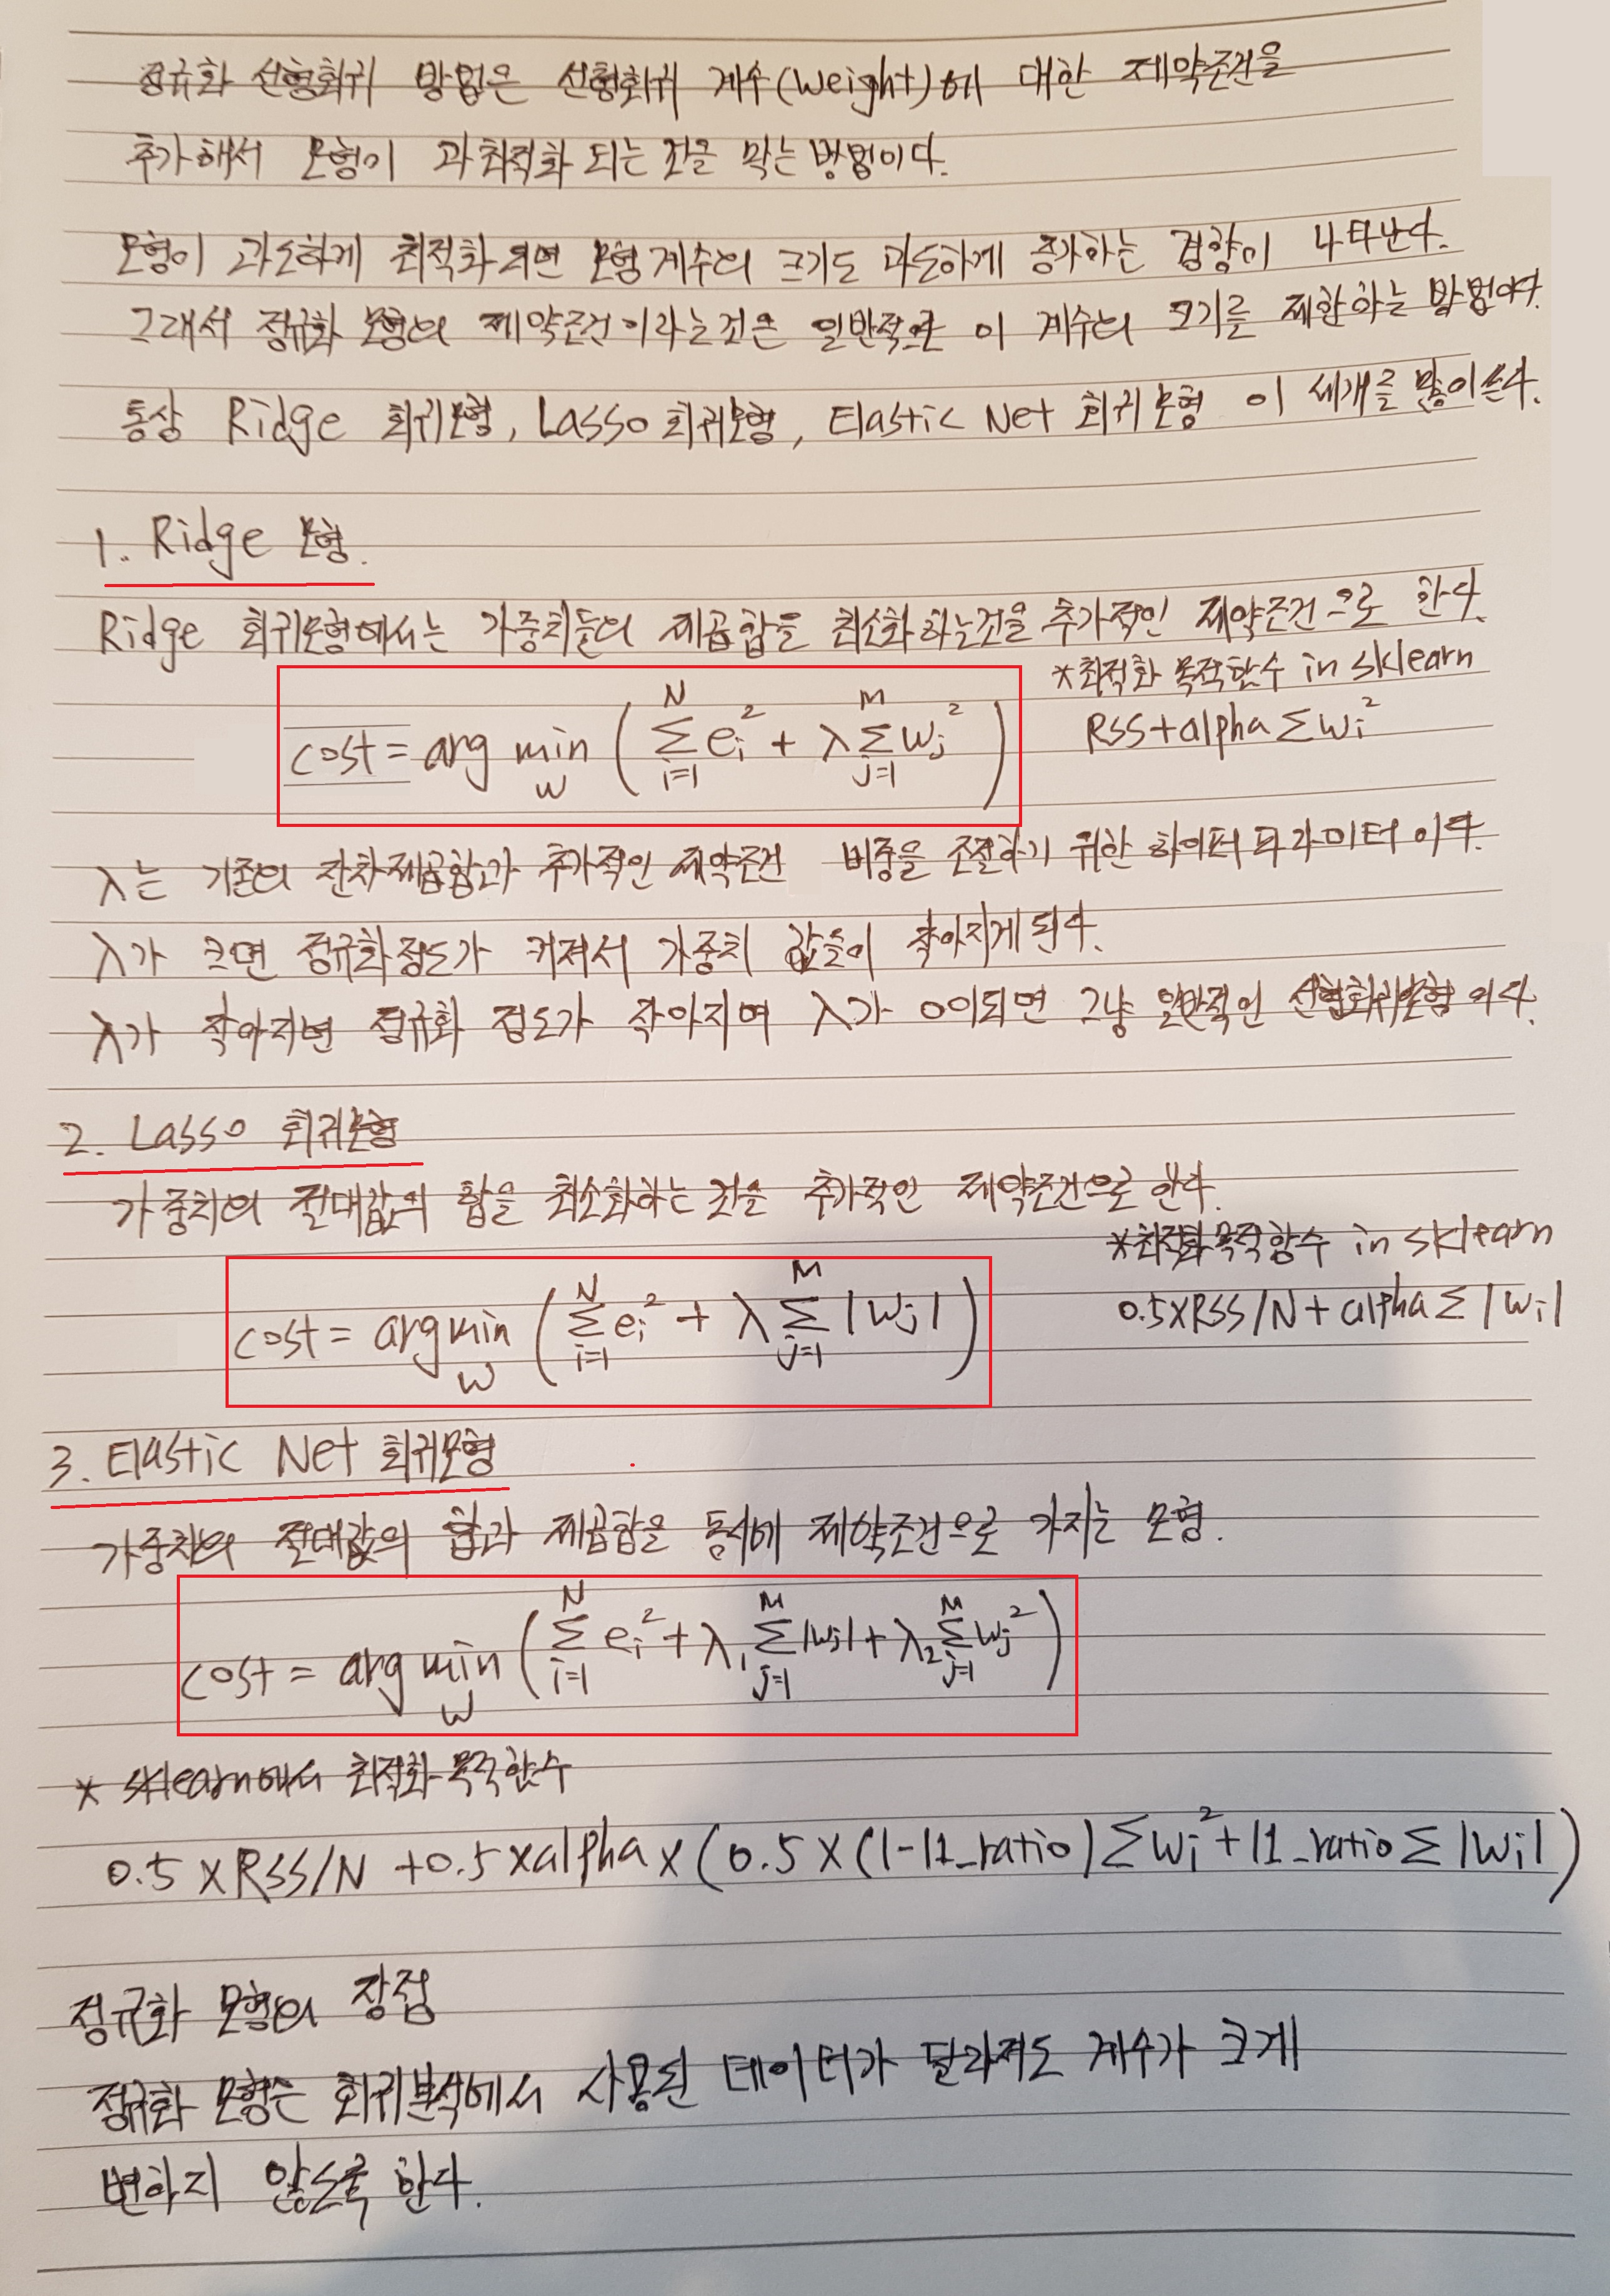 정규화 선형회귀 방법은 선형회귀 계수(weight)에 대한 제약조건을
추가해서 모형이 과최적화 되는 것을 막는 방법이다.
모형이 과도하게 최적화되면 모형계수의 크기도 과도하게 증가하는 경향이 나타난다.
그래서 정규화 모형의 제약조건이라는것은 일반적으로 이 계수의 크기를 제한하는 방법이다.
통상 Ridge 회귀모형, Lasso 회귀모형, Elastic Net 회귀모형 이 세개를 많이쓴다.
1. Ridge 모형.
Ridge 회귀모형에서는 가중치들의 제곱합을 최소화하는것을 추가적인 제약조건으로 한다.
*최적화 목적함수 in sklearn
cost = arg min_w ( Σ_{i=1}^{N} e_i^2 + λ Σ_{j=1}^{M} w_j^2 )
RSS + alpha Σ w_i^2
λ는 기존의 잔차제곱합과 추가적인 제약조건 비중을 조절하기 위한 하이퍼파라미터이다.
λ가 크면 정규화정도가 커져서 가중치 값들이 작아지게 된다.
λ가 작아지면 정규화 정도가 작아지며 λ가 0이되면 그냥 일반적인 선형회귀모형이다.
2. Lasso 회귀모형
가중치의 절대값의 합을 최소화하는 것을 추가적인 제약조건으로 한다.
*최적화 목적함수 in sklearn
cost = arg min_w ( Σ_{i=1}^{N} e_i^2 + λ Σ_{j=1}^{M} |w_j| )
0.5×RSS/N + alpha Σ |w_i|
3. Elastic Net 회귀모형
가중치의 절대값의 합과 제곱합을 동시에 제약조건으로 가지는 모형.
cost = arg min_w ( Σ_{i=1}^{N} e_i^2 + λ_1 Σ_{j=1}^{M} |w_j| + λ_2 Σ_{j=1}^{M} w_j^2 )
* sklearn에서 최적화 목적함수
0.5 × RSS/N + 0.5 × alpha × (0.5 × (1-l1_ratio) Σ w_i^2 + l1_ratio Σ |w_i|)
정규화 모형의 장점
정규화 모형은 회귀분석에서 사용된 데이터가 달라져도 계수가 크게
변하지 않도록 한다.